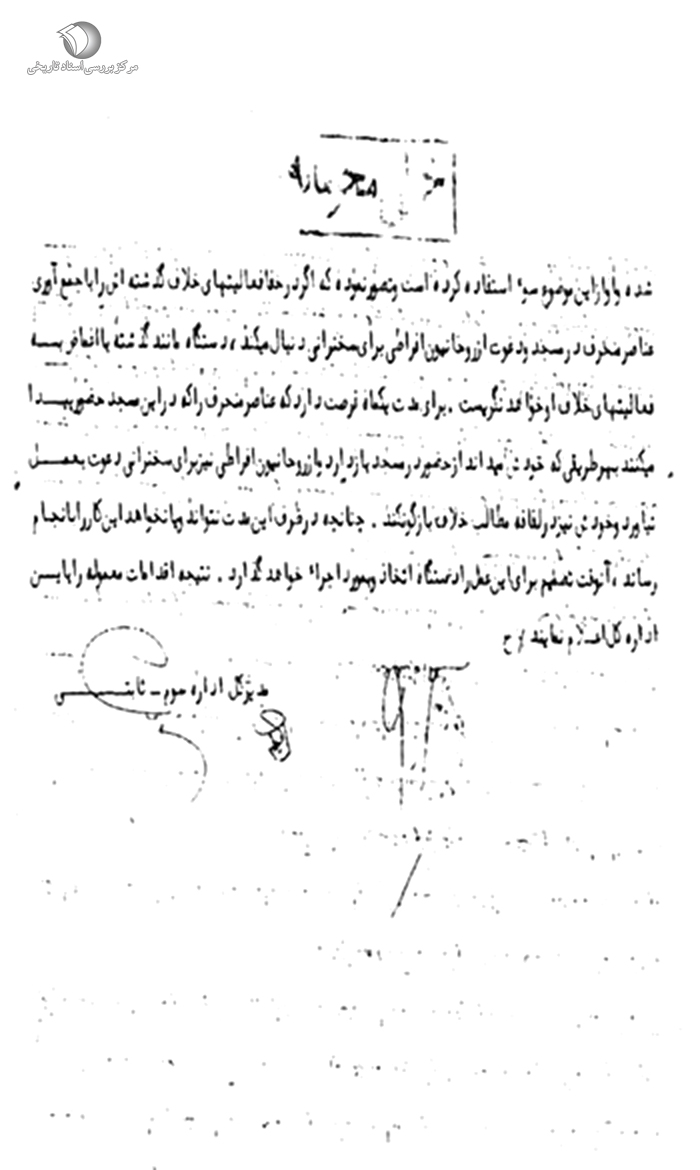 مرکز بررسی اسناد تاریخی
خیلی محرمانه
شده و او از این موضوع سوء استفاده کرده است و تصور نموده که اگر در خفا فعالیتهای خلاف گذشته اش را با جمع آوری
عناصر منحرف در مسجد و دعوت از روحانیون افراطی برای سخنرانی دنبال میکند ، دستگاه مانند گذشته با اغماض بـــه
فعالیتهای خلاف او خواهد نگریست . برای مدت یکماه فرصت دارد که عناصر منحرف را که در این مسجد حضور پیـــدا
میکنند بهر طریقی که خودش میداند از حضور در مسجد بازدارد و از روحانیون افراطی نیز برای سخنرانی دعوت بعمـــل
نیآورد و خودش نیز در لفافه مطالب خلاف بازگو نکند . چنانچه در ظرف این مدت نتواند و یا نخواهد این کار را بانجام
رساند ، آنوقت تصمیم برای این عمل را دستگاه اتخاذ و بمورد اجراء خواهد گذارد . نتیجه اقدامات معموله را باین
اداره کل اعلام نمایند / ح
مدیر کل اداره سوم ـ ثابتـــــی